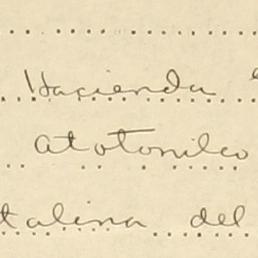 Hacienda
Atotonilco
talina del